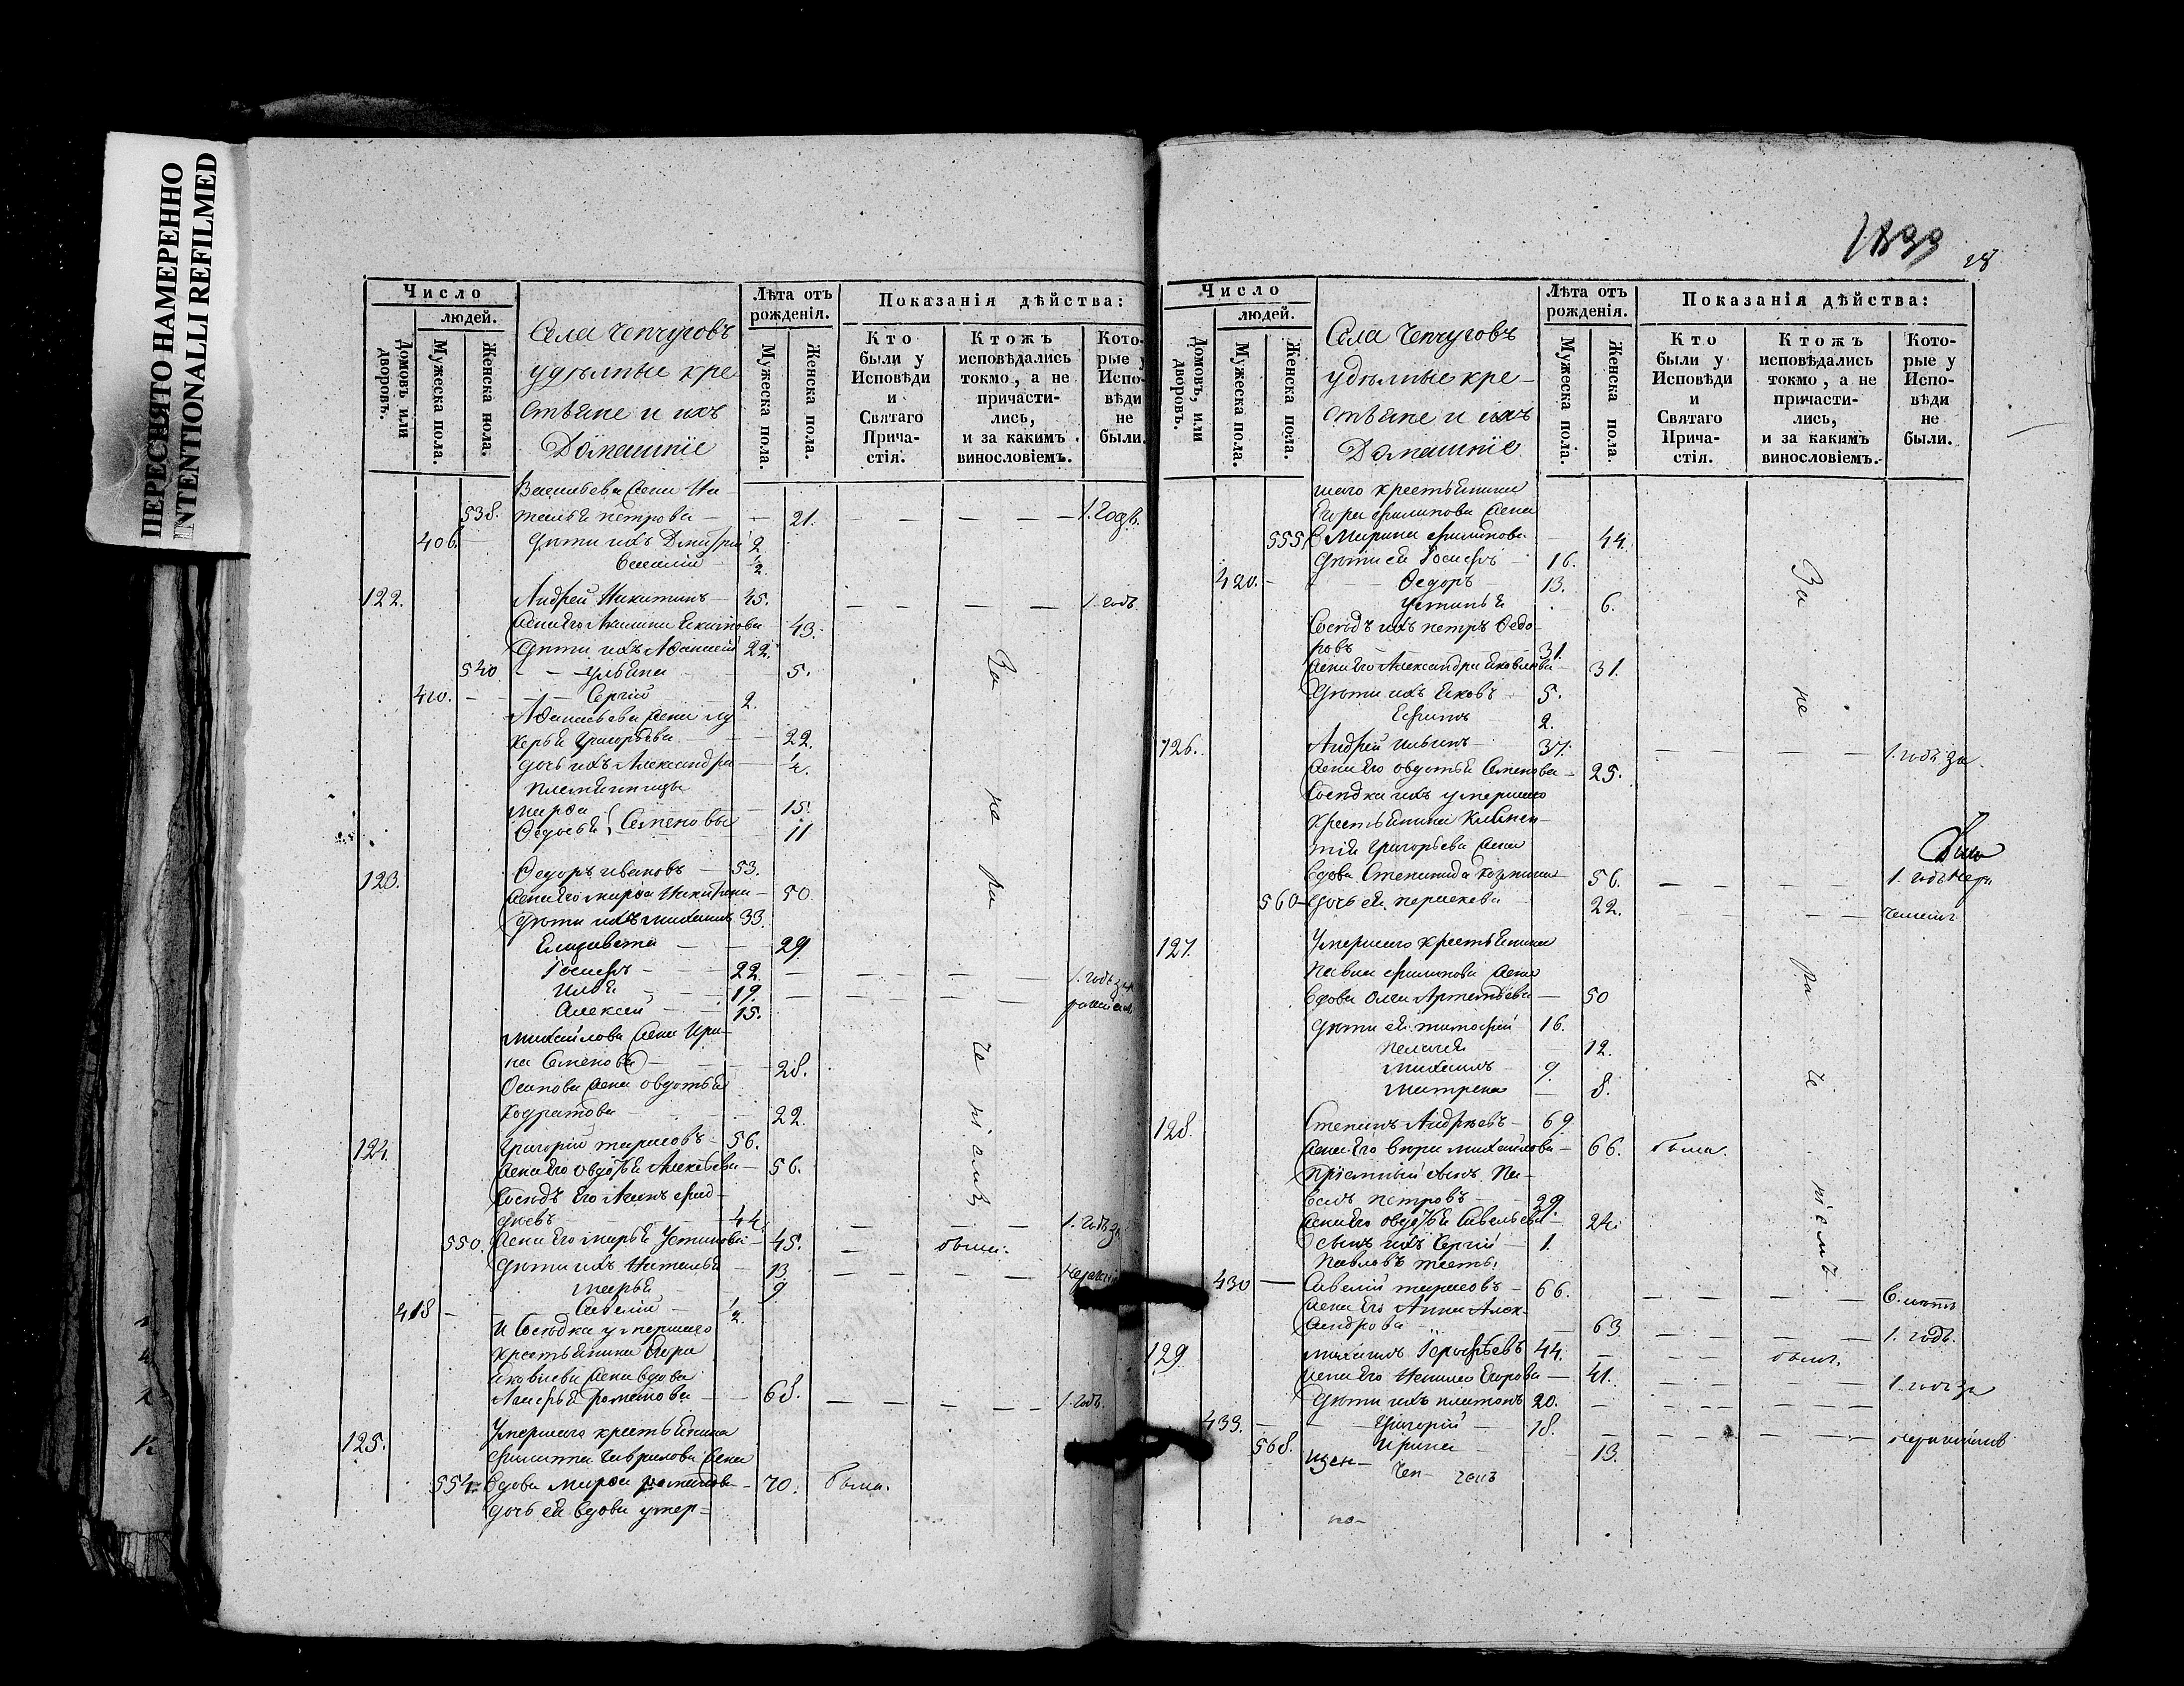 ПЕРЕСНЯТО НАМЕРЕННО
INTENTIONALLI REFILMED
Число
людей.
Домовъ или дворовъ.
Мужеска пола.
Женска пола.
Села Чепчуговъ
удѣльные кре-
стьяне и ихъ
Домашніе
Лѣта отъ рожденія.
Мужеска пола.
Женска пола.
Показанія дѣйства:
Кто были у Исповѣди и Святаго Прича-стія.
Ктожъ исповѣдались токмо, а не причасти-лись, и за какимъ винословіемъ.
Кото-рые у Испо-вѣди не были.
Васильева жена На-
538. талья Петрова — 21. 1. годъ.
406. Дѣти ихъ Дмитрій 2
Василій ½
122. Андрей Никитинъ 45. 1. годъ.
Жена его Акилина Екимова 43.
Дѣти ихъ Афанасій 22.
540 Ульяна 5.
410. Сергій 2.
Афанасьева жена Лу-
керья Григорьева 22.
дочь ихъ Александра ¼.
племянницы
Марфа 15.
Федосья } Семеновы 11
123. Федоръ Ивановъ 53.
Жена его Марфа Никитина 50
Дѣти ихъ Михаилъ 33.
Елизавета 29
Іосифъ 22. 1. годъ за
Илья 19.
Алексѣй 15.
Михайлова жена Ири-
на Семенова 28.
Осипова жена Овдотья
Кодратова 22.
124. Григорій Тарасовъ 56.
Жена его Овдотья Алексѣева 56.
Сосѣдъ его Акимъ Фад-
дѣевъ 44. 1. годъ за
550. Жена его Марья Устинова 45. была.
Дѣти ихъ Наталья 13
Марья 9
418 Савелій ½.
И сосѣдка умершаго
крестьянина Егора
Яковлева жена вдова
Агафья Романова 68. 1. годъ.
125. Умершаго крестьянина
Филиппа Гаврилова жена
554. вдова Марфа Романова 70. была.
дочь ея вдова умер-
За не ра че ніемъ
1839
28
Число
людей.
Домовъ, или дворовъ.
Мужеска пола.
Женска пола.
Села Чепчуговъ
удѣльные кре-
стьяне и ихъ
Домашніе
Лѣта отъ рожденія.
Мужеска пола.
Женска пола.
Показанія дѣйства:
Кто были у Исповѣди и Святаго Прича-стія.
Ктожъ исповѣдались токмо, а не причасти-лись, и за какимъ винословіемъ.
Кото-рые у Испо-вѣди не были.
шаго крестьянина
Егора Филипова жена
555. Марина Филипова 44.
Дѣти ея Іосифъ 16.
420. Федоръ 13.
Устинья 6.
Сосѣдъ ихъ Петръ Федо-
ровъ 31.
Жена его Александра Яковлева 31.
Дѣти ихъ Яковъ 5.
Ефимъ 2.
126. Андрей Ильинъ 37. 1. годъ за
Жена его Овдотья Семенова 25.
Сосѣдка ихъ умершаго
крестьянина Климен-
тія Григорьева жена
вдова Степанида Козмина 56. 1. годъ нера
560 Дочь ея Пераскева 22. ченіемъ
127. Умершаго крестьянина
Павла Филипова жена
вдова Ольга Артемьева 50
Дѣти ея Тимофей 16.
Пелагея 12.
Михаилъ 9.
Матрена 8.
128. Степанъ Андреевъ 69.
Жена его Вѣра Михайлова 66. была.
Пріемный сынъ Па-
велъ Петровъ 29.
Жена его Овдотья Савельева 24.
сынъ ихъ Сергій 1.
Павловъ тесть
430 Савелій Тарасовъ 66. 6. лѣтъ
Жена его Анна Алек-
сандрова 63 1. годъ.
129. Михаилъ 44. былъ.
Жена его Егорова 41. 1. годъ за
Дѣти ихъ Платонъ 20.
433. Григорій 18. нераченіемъ
568. Ирина 13.
За не ра че ніемъ